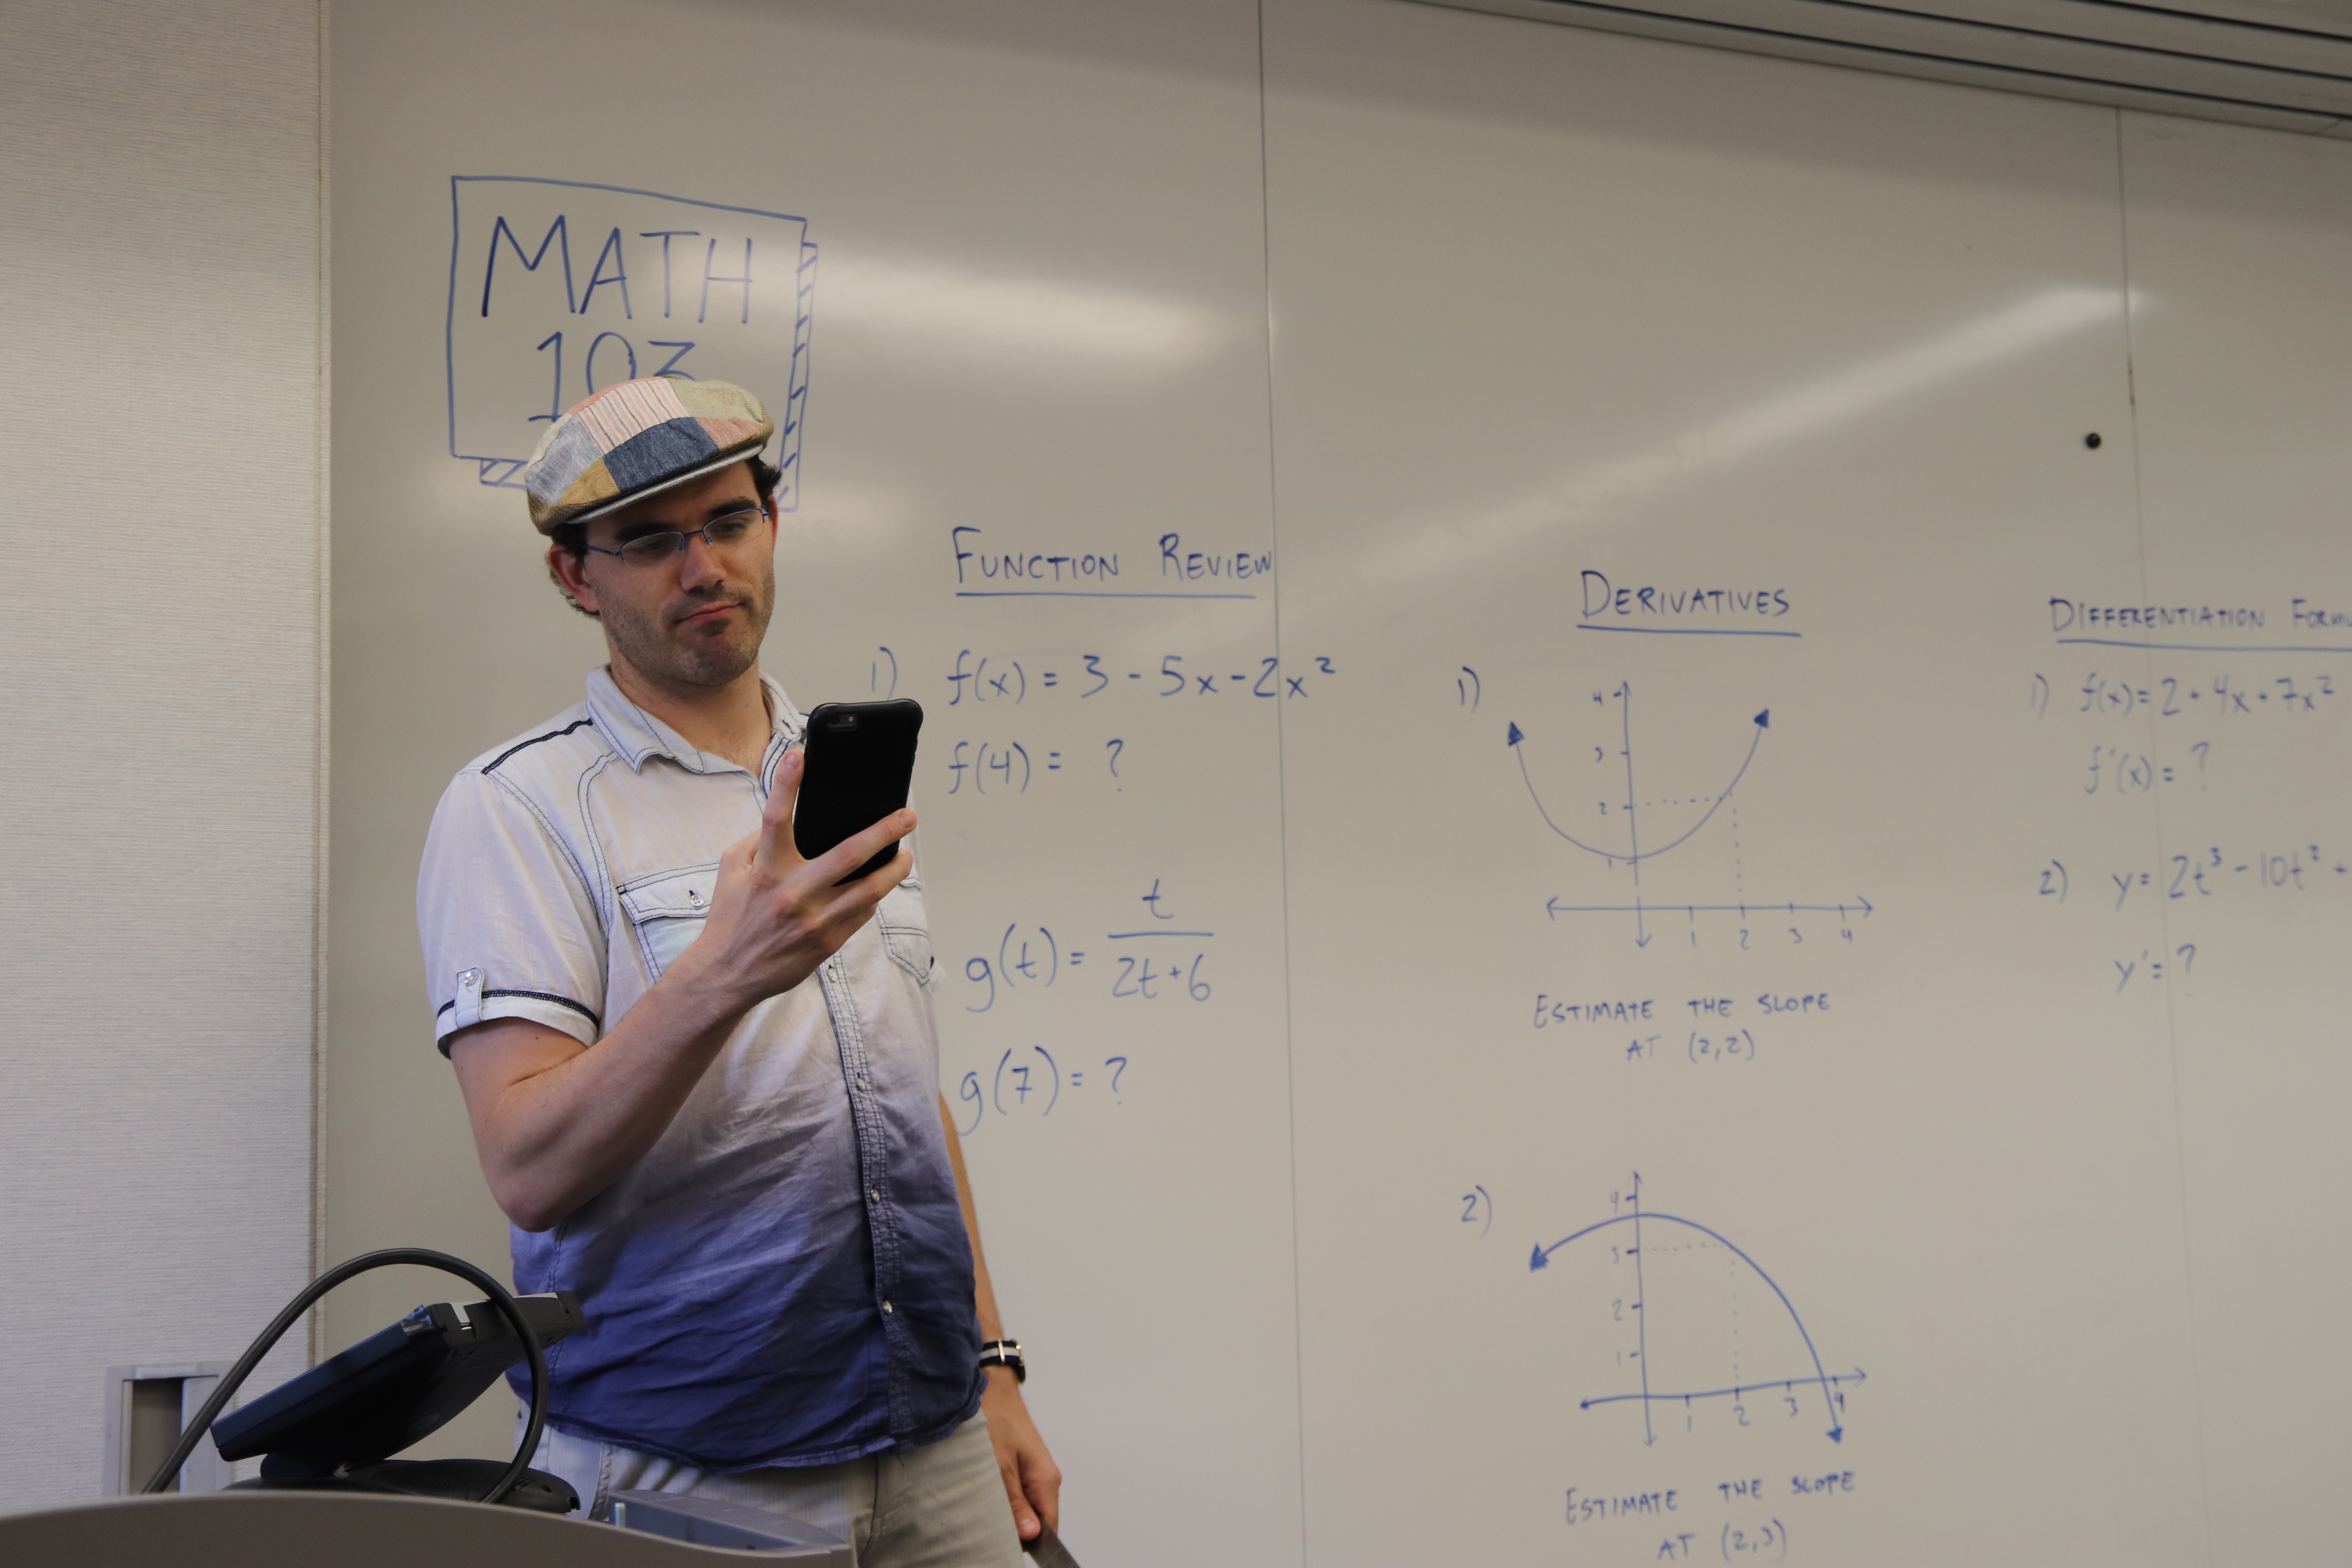 MATH
103
FUNCTION REVIEW
1) f(x) = 3 - 5x - 2x²
f(4) = ?
g(t) = t / (2t + 6)
g(7) = ?
DERIVATIVES
1)
4
3
2
1
1 2 3 4
ESTIMATE THE SLOPE
AT (2,2)
2)
4
3
2
1
1 2 3 4
ESTIMATE THE SLOPE
AT (2,3)
DIFFERENTIATION
1) f(x) = 2 + 4x + 7x²
f'(x) = ?
2) y = 2t³ - 10t² +
y' = ?